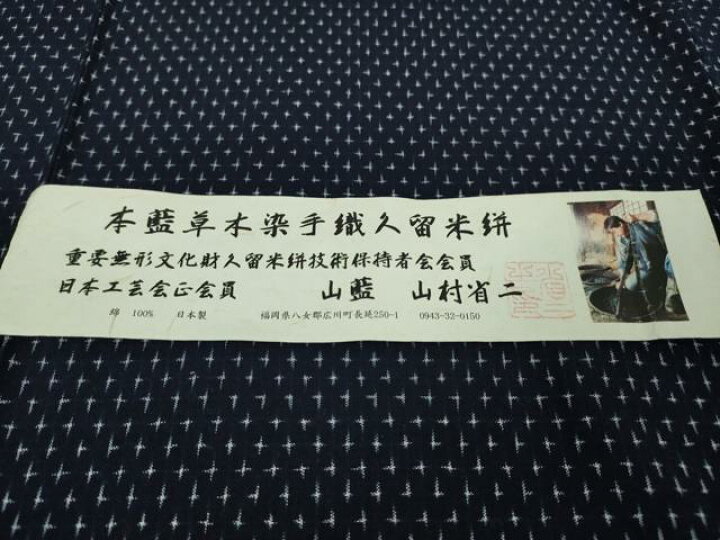 本藍草木染手織久留米絣
重要無形文化財久留米絣技術保持者会会員
日本工芸会正会員 山藍 山村省二
綿 100% 日本製 福岡県八女郡広川町長延250-1 0943-32-0150